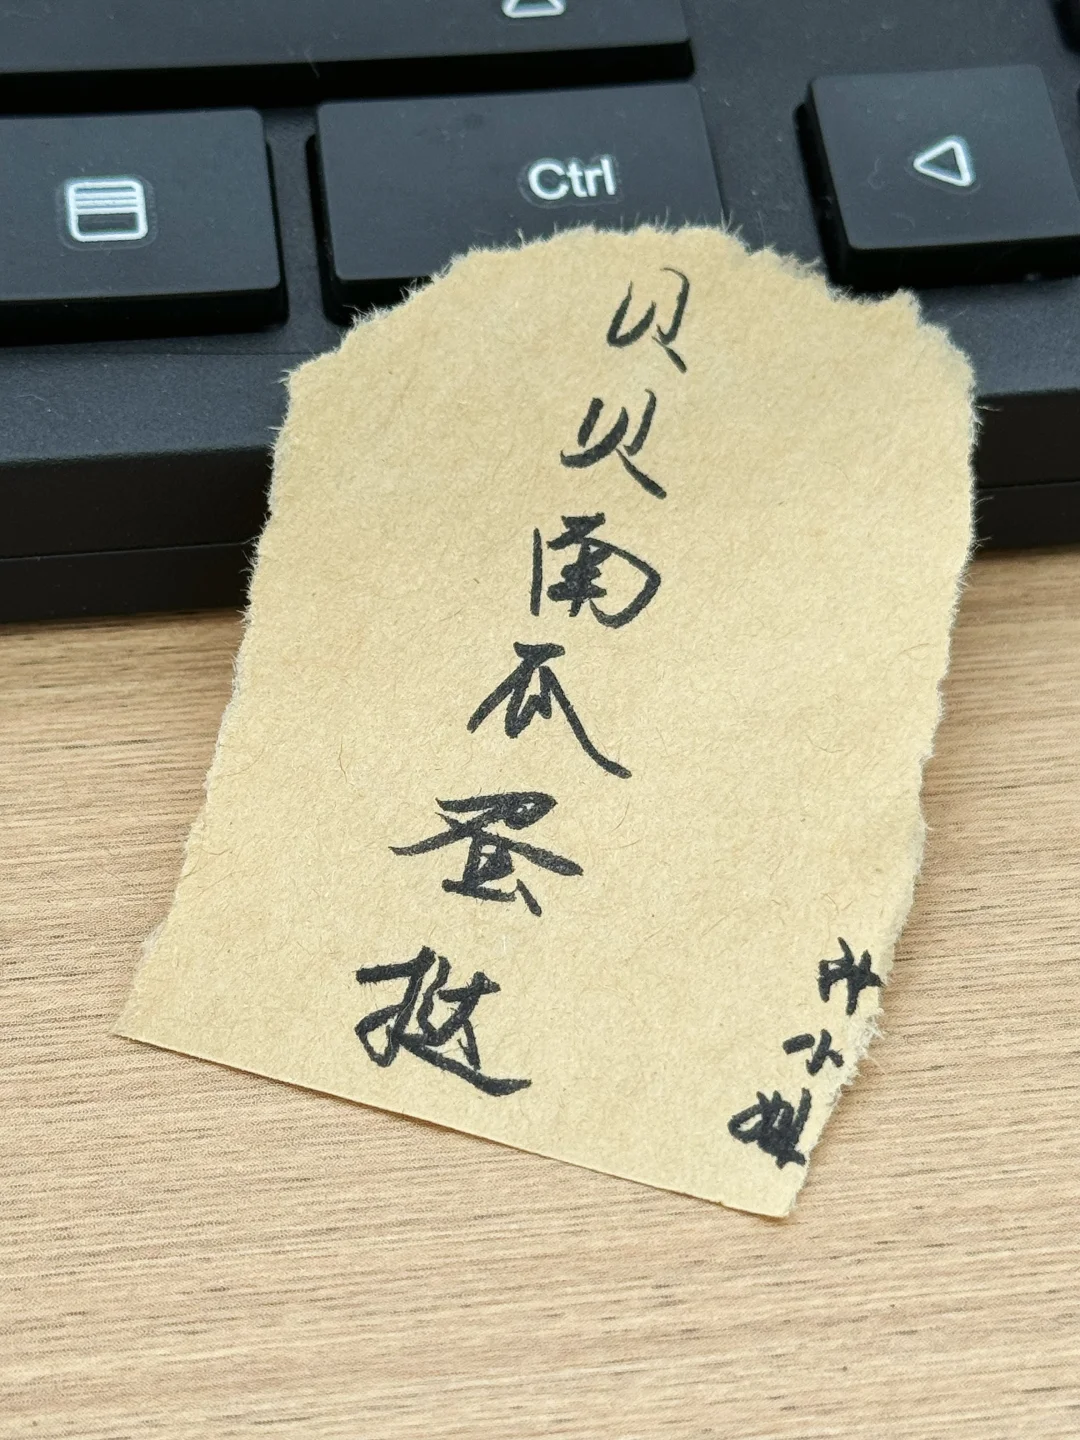 Ctrl
贝贝南瓜蛋挞
小姐